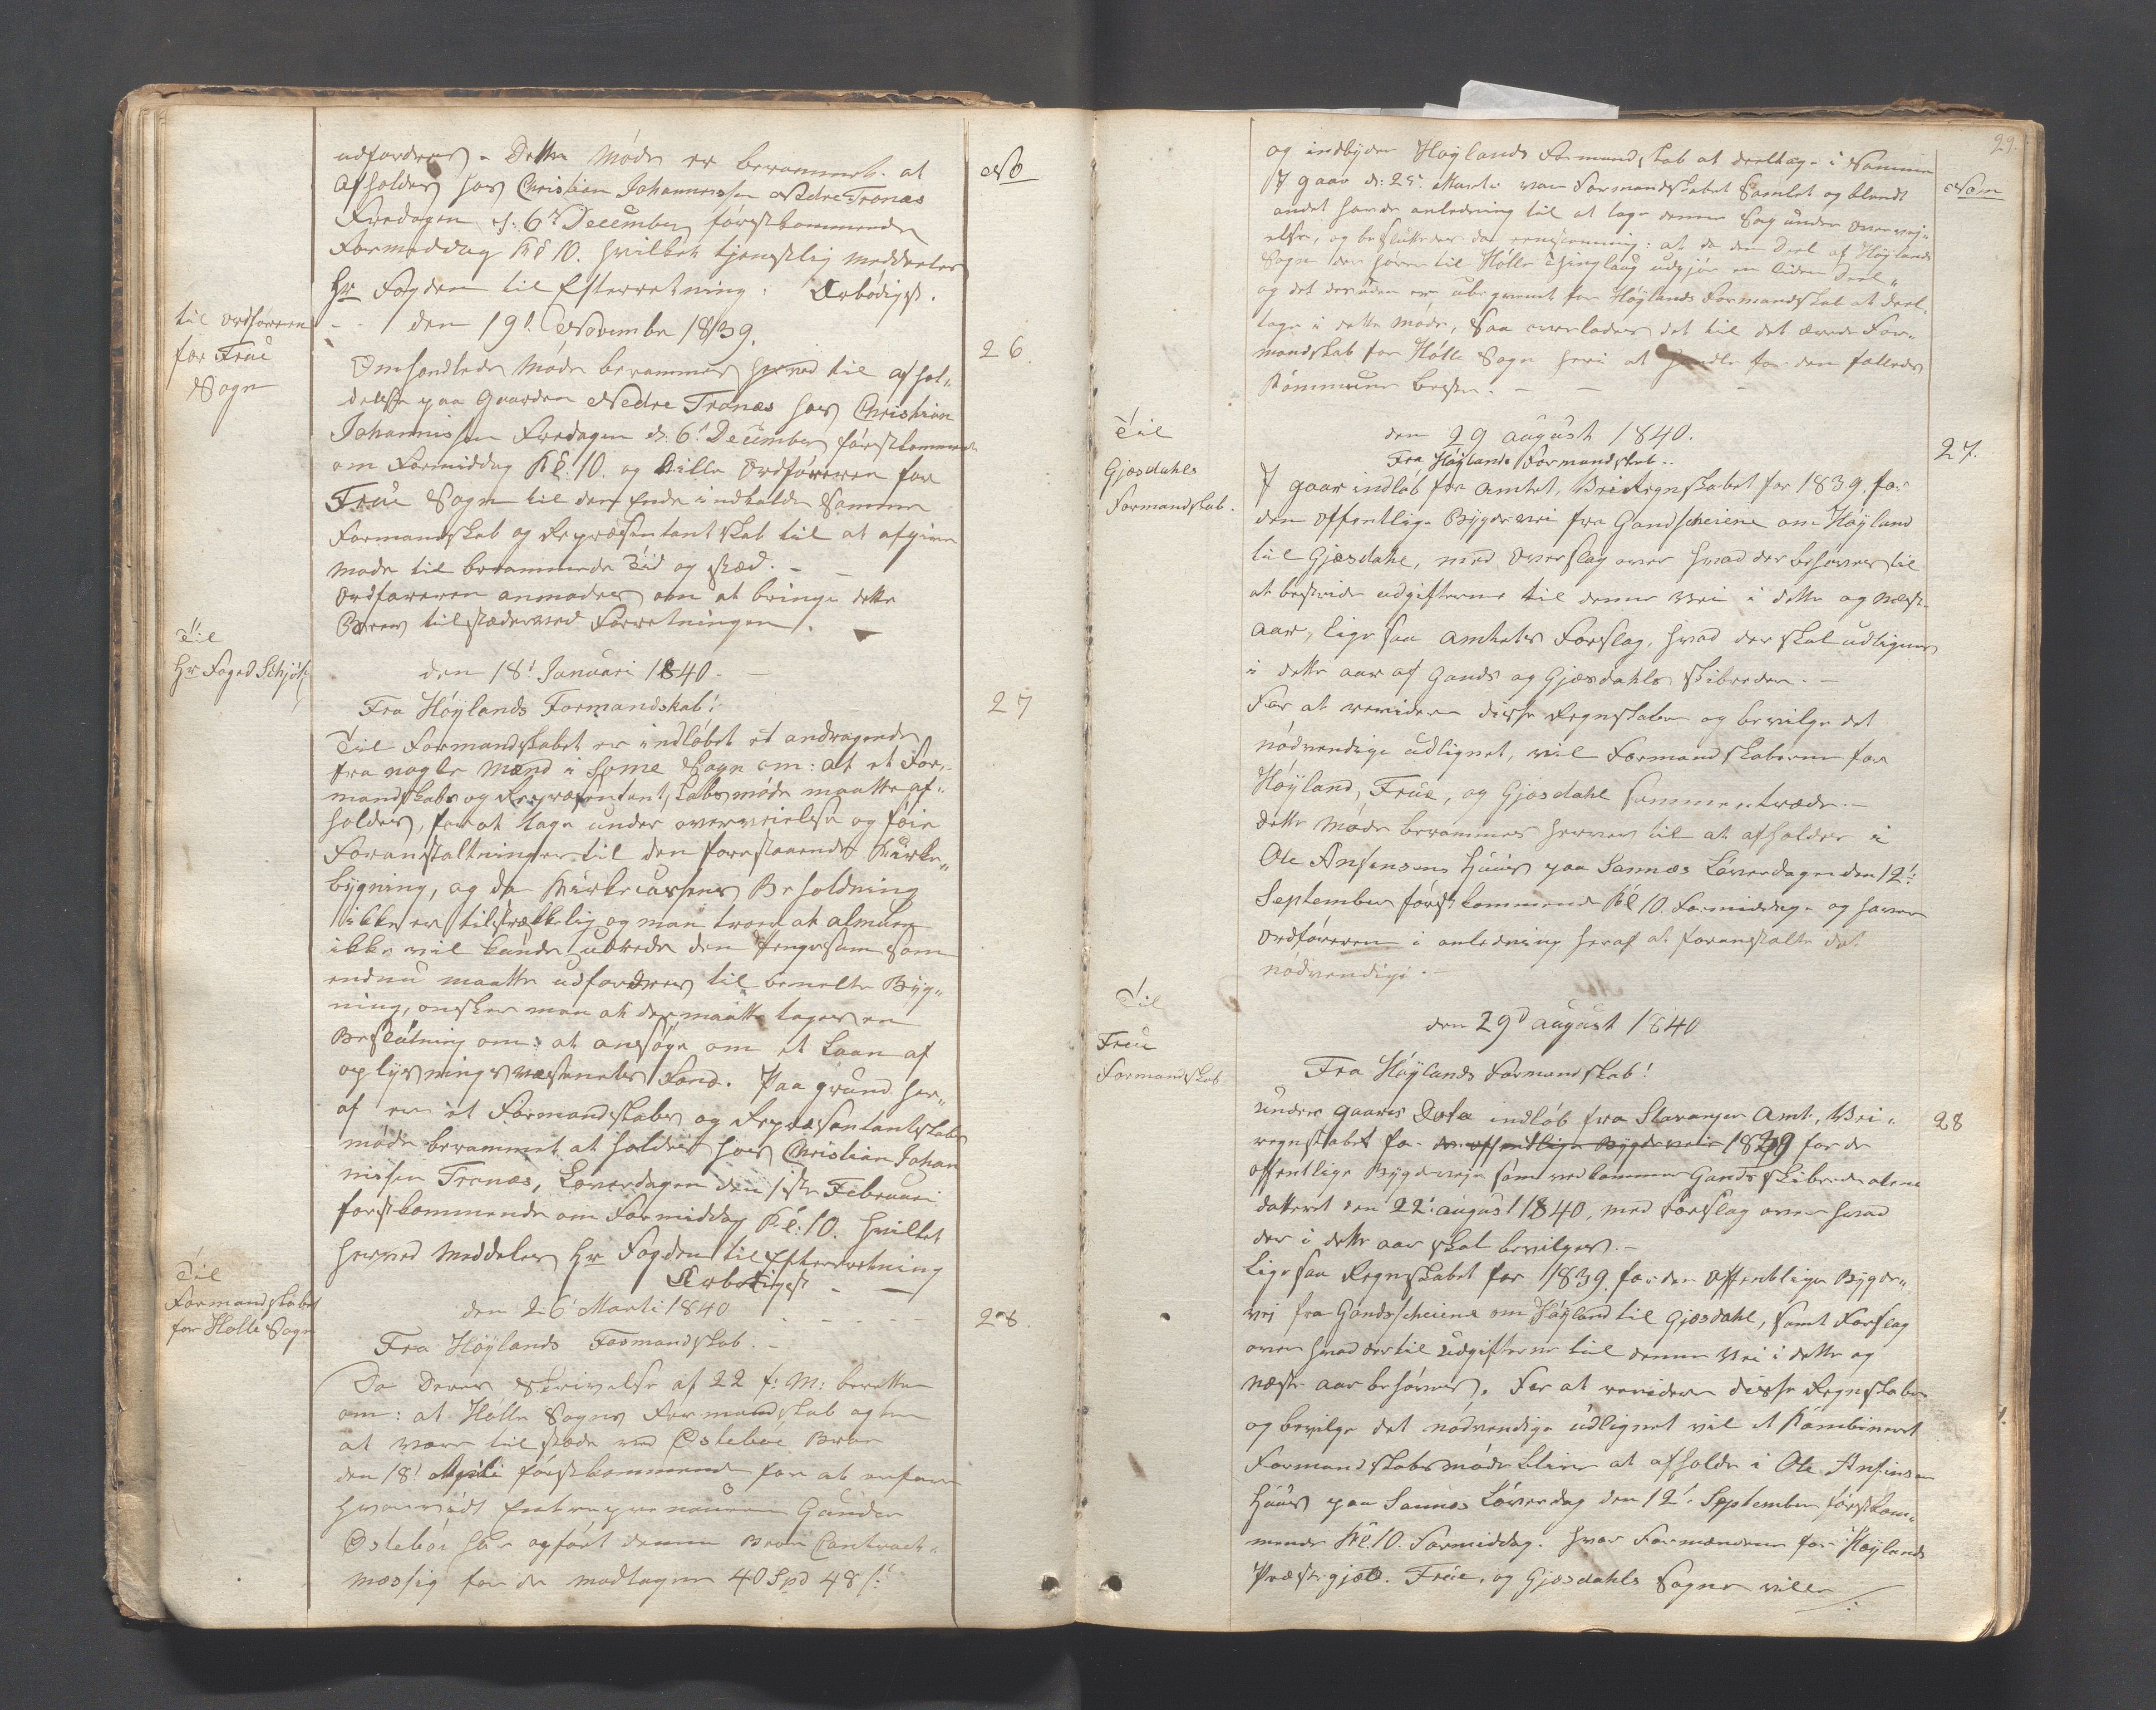 No
udfordres. Dette Møde er berammet at
afholdes hos Christian Johannessen Nedre Tronæs
Fredagen d. 6te December førstkommende
Formeddag Kl 10. hvilket tjenstlig meddeeles
Hr Fogden til Efterretning. Ærbødigst.
til Ordføreren
for Frue
Sogn
den 19de November 1839.
26.
Omhandlede Møde berammes herved til afhol-
delse paa Gaarden Nedre Tronæs hos Christian
Johannissen Fredagen d. 6' December førstkommende
om Formiddag Kl. 10. og ville Ordføreren for
Frue Sogn til den Ende indkalde Samme
Formandskab og Repræsentantskab til at afgive
Møde til berammede Tid og stæd. -
Ordføreren anmodes om at bringe dette
Brev tilstæde ved Forretningen.
Til
Hr Foged Schiötz
den 18' Januari 1840.
Fra Höÿlands Formandskab!
27
Til Formandskabet er indløbet et andragende
fra nogle Mænd i Somme Sogn om: at et For-
mandskabs og Repræsentantskabsmøde maatte af-
holdes, for at tage under overveielse og føie
Foranstaltninger til den forestaaende Kirke-
bygning, og da Kirkecassens Beholdning
ikke er tilstrækkelig og man troer at almuen
ikke vil kunde udrede den Pengesum som
endnu maatte udfordres til bemelte Byg-
ning, ønsker man at der maatte tages en
Beslutning om: at ansøge om et Laan af
oplysningsvæsenets Fond. Paa grund her-
af er et Formandskabs og Repræsentantskabs
møde berammet at holdes hos Christian Johan
nissen Tronæs, Løverdagen den 1ste Februari
førstkommende om Formiddag Kl. 10. hvilket
herved Meddeles Hr Fogden til Efterretning
Ærbødigst
Til
Formandskabet
for Holle Sogn
den 26' Marti 1840
28.
Fra Höÿlands Formandskab.
Da Deres Skrivelse af 22 f. M: beretter
om: at Holle Sogns Formandskab agter
at være til stæde ved Østebøe Broe
den 18' Aprili førstkommende for at erfare
hvorvidt Entreprenøren Gunder
Østebøi har opført denne Broe Contract-
mæssig for de modtagne 40 Spd 48 s:
29.
Nom
og indbyder Höylands Formandskab at deeltage i Samme
I gaar d: 25. Marti var Formandskabet Samlet og blandt
andet havde anledning til at tage denne Sag under overvej-
else, og besluttedes da eenstemmig: at da den Deel af Höylands
Sogn der hører til Hölle Thinglaug udgjør en liden Deel
og det desuden er ubeqvemt for Höylands Formandskab at deel-
tage i dette Møde, Saa overlades det til det ærede For-
mandskab for Hölle Sogn heri at handle for den fælleds
Kommunes beste.
Til
Gjæsdahls
Formandskab.
den 29 august 1840.
Fra Höylands Formandskab.
27.
I gaar indløb fra Amtet, Veiregnskabet for 1839 for
den offentlige Bygdevei fra Gandscheiene om Höyland
til Gjæsdahl, med Overslag over hvad der behøves til
at bestride udgifterne til denne Vei i dette og Næste
aar, lige saa Amtets Forslag, hvad der skal udlignes
i dette aar af Gands og Gjæsdahls Skibreder.
For at revidere disse Regnskaber og bevilge det
nødvendige udlignet, vil Formandskaberne for
Höyland, Frue, og Gjæsdahl sammentræde.
dette Møde berammes herved til at afholdes i
Ole Ansensens Huus paa Sannæs Löverdagen den 12'
September förstkommende Kl 10. Formiddag og haver
Ordføreren i anledning heraf at foranstalte det
nødvendige.
Til
Frue
Formandskab
den 29d august 1840
Fra Höylands Formandskab!
28
Under gaars Dato indløb fra Stavanger Amt, Vei-
regnskabet for den offentlige Bygdeveie 1839 for de
offentlige Bygdeveje som vedkommer Gands Skibrede alene
datteret den 22' august 1840, med Forslag over hvad
der i dette aar skal bevilges.
Lige saa Regnskabet for 1839 for den offentlige Bygde-
vei fra Gandsscheiene om Höyland til Gjæsdahl, samt Forslag
over hvad der til Udgifterne til denne Vei i dette og
næste aar behøves. For at revidere disse Regnskaber
og bevilge det nødvendige udlignet vil et Kombineret
Formandskabsmøde blive at afholde i Ole Ansensen
Huus paa Sannæs Löverdag den 12' September förstkom-
mende Kl 10. Formiddag. hvor Formændene for Höylands
Præstegjæld. Frue, og Gjæsdahls Sogne ville